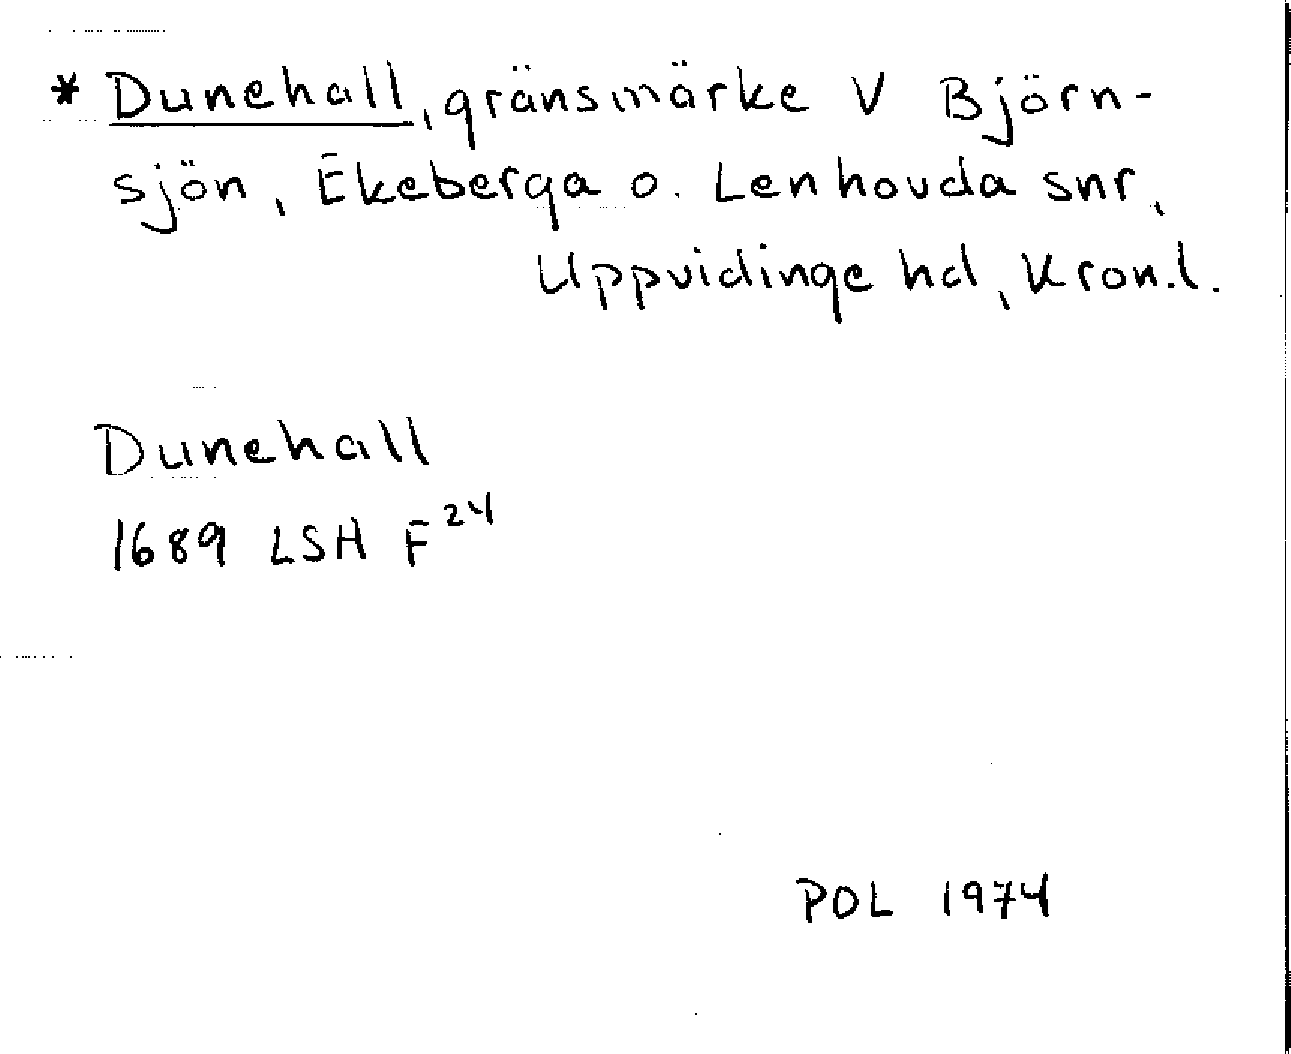 * Dunehall, gränsmärke V Björn-
sjön, Ekeberga o. Lenhovda snr,
Uppvidinge hd, Kron.l.
Dunehall
1689 LSH F²⁴
POL 1974